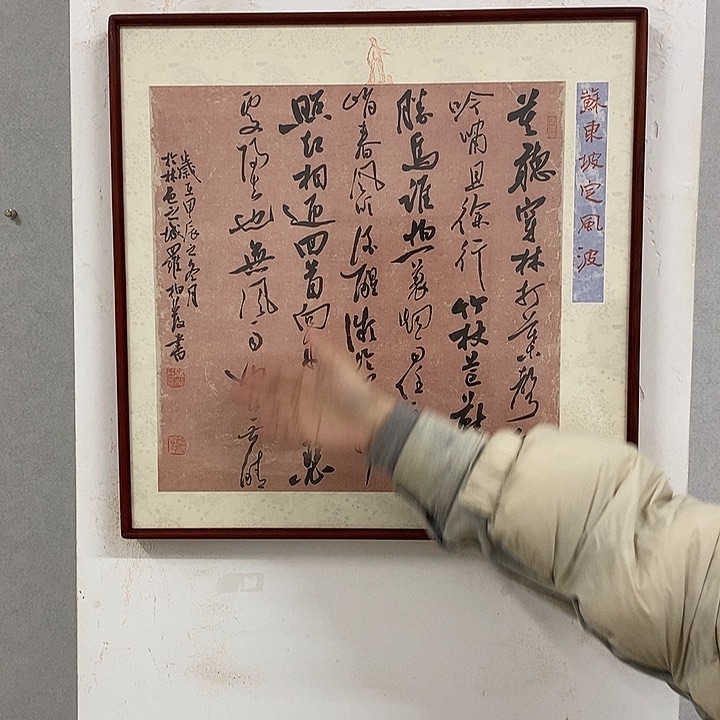 蘇東坡定風波
莫聽穿林打葉聲
吟嘯且徐行竹杖芒鞋
勝馬誰怕一蓑烟雨任
峭春風吹酒醒微冷
照却相迎回首向来瑟
處歸去也無風雨也无晴
歲在甲辰之冬月
於林邑之城羅柏書